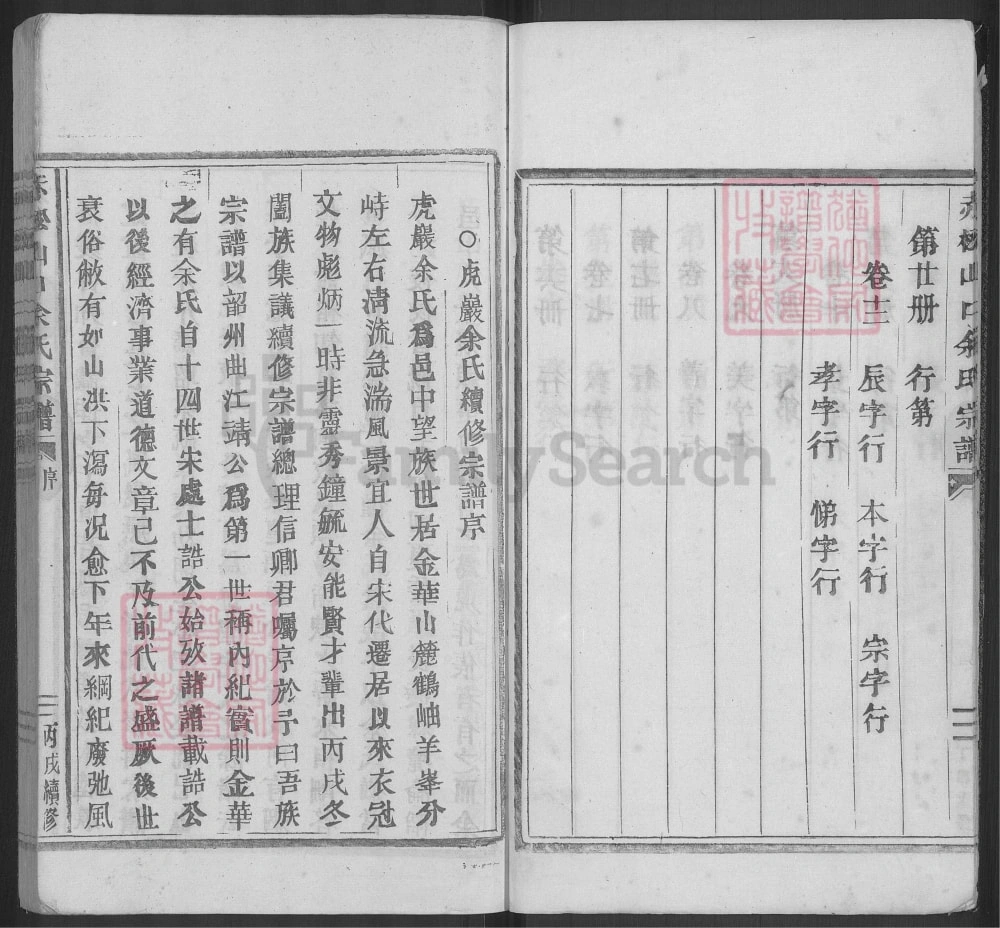 赤松山口余氏宗譜
第廿冊 行第
卷十三 辰字行 本字行 宗字行
孝字行 悌字行
二
○虎巖余氏續修宗譜序
虎巖余氏爲邑中望族世居金華山麓鶴岫羊峯分
峙左右清流急湍風景宜人自宋代遷居以來衣冠
文物彪炳一時非靈秀鐘毓安能賢才輩出丙戌冬
闔族集議續修宗譜總理信卿君囑序於予曰吾族
宗譜以韶州曲江靖公爲第一世稱內紀實則金華
之有余氏自十四世宋處士誥公始攷諸譜載誥公
以後經濟事業道德文章已不及前代之盛厥後世
衰俗敝有如山洪下瀉每況愈下年來綱紀廢弛風
赤松山口余氏宗譜 序 一 丙戌續修
FamilySearch